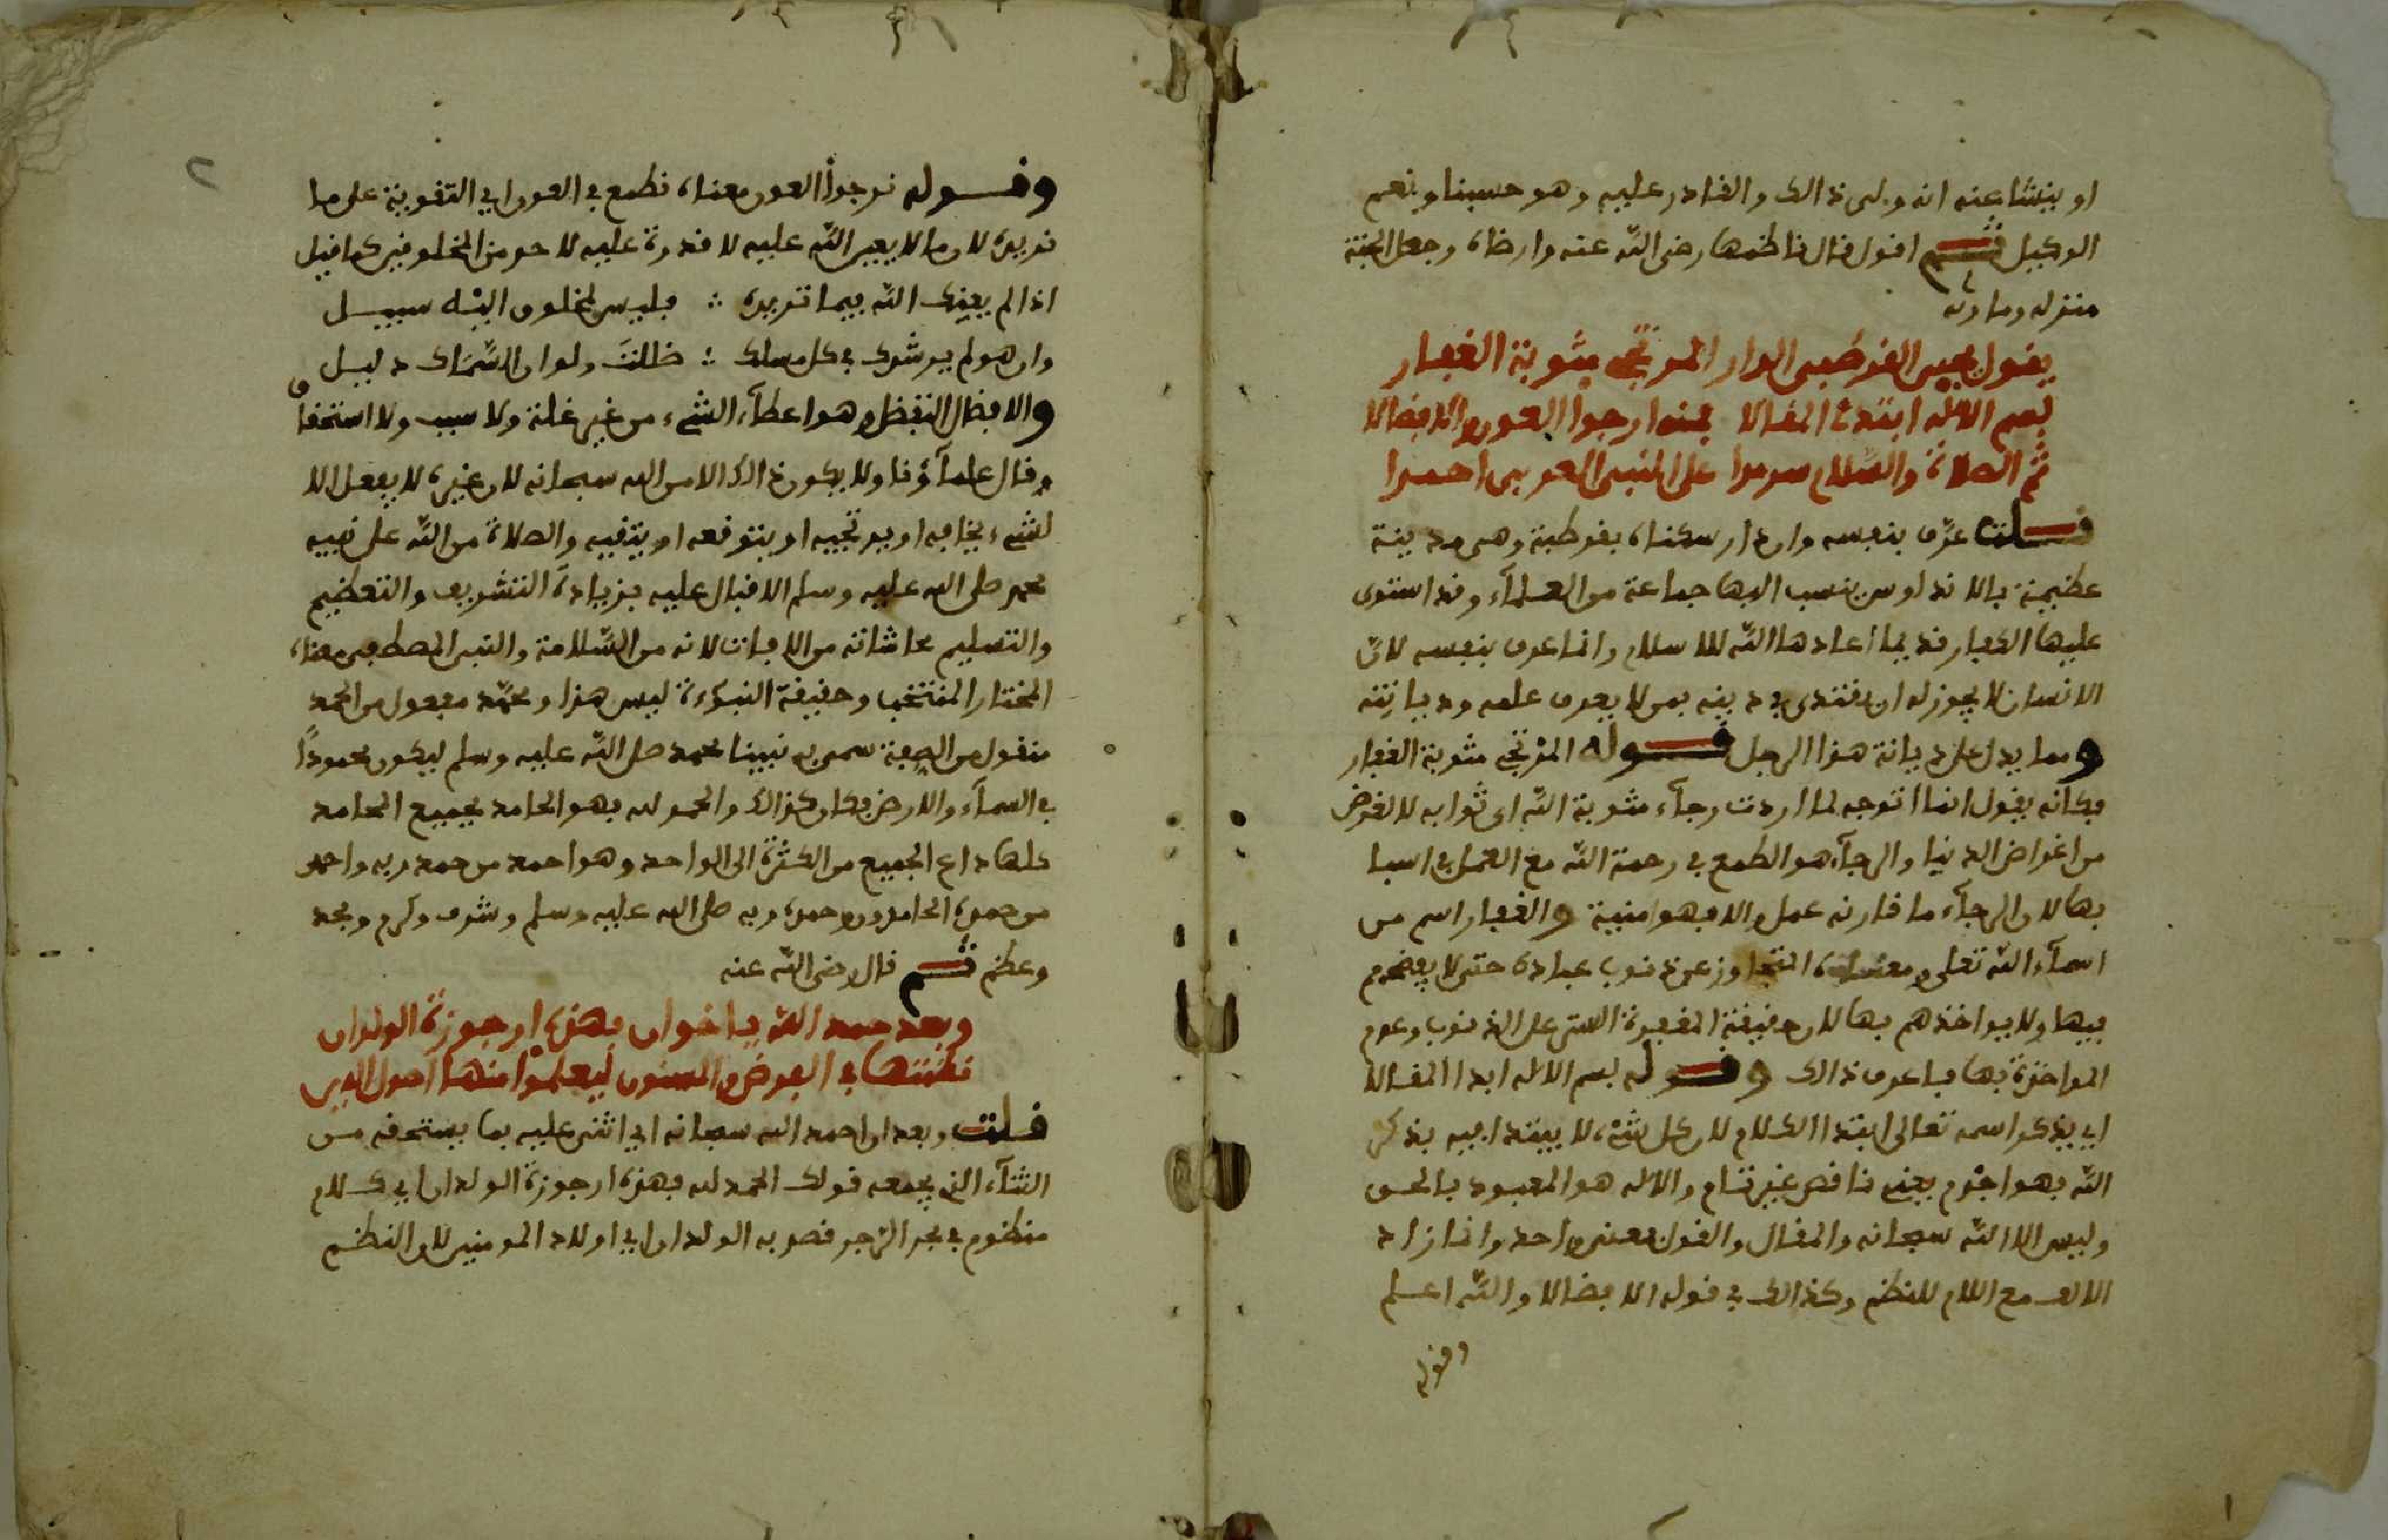 او ينشا عنه انه ولى ذالك والقادر عليه وهو حسبنا ونعم
الوكيل ثم اقول قال ناظمها رضى الله عنه وارضاه وجعل الجنة
منزله وماوىه
يقول يحيى القرطبى الدار المرتجى مثوبة الغفار
بسم الاله ابتدئ المقالا فمنه ارجوا العون والافضالا
ثم الصلاة والسلام سرمدا على النبى العربى احمدا
قلت عرّف بنفسه وان دار سكناه بقرطبة وهى مدينة
عظيمة بالاندلوس ينسب اليها جماعة من العلمآء وقد استولى
عليها الكفار قديما اعادها الله للاسلام وانما عرف بنفسه لانّ
الانسان لا يجوز له ان يقتدى في دينه بمن لا يعرف علمه وديانته
ومما يدل على ديانة هذا الرجل قوله المرتجى مثوبة الغفار
فكانه يقول انما اتوجه لما اردت رجآء مثوبة الله اى ثوابه لا لغرض
من اغراض الدنيا والرجآء هو الطمع في رحمة الله مع العمل في اسبا
بها لان الرجآء ما قارنه عمل والا فهو امنية والغفار اسم من
اسمآء الله تعلى ومعناه المتجاوز عن ذنوب عباده حتى لا يفضحهم
فيها ولا يواخذهم بها لان حقيقة المغفرة الستر على الذنوب وعدم
المواخذة بها فاعرف ذالك وقوله بسم الاله ابدا المقالا
اي بذكر اسمه تعالى ابتدا الكلام لان كل شيء لا يبتدا فيه بذكر
الله فهو اجذم يعنى ناقص غير تام والاله هو المعبود بالحق
وليس الا الله سبحانه والمقال والقول معنى واحد وانما زاد
الالف مع اللام للنظم وكذالك في قوله الافضالا والله اعلم
وقوله
وقوله نرجوا العون معناه نطمع في العون اي التقوية على ما
نريده لان ما لا يعين الله عليه لا قدرة عليه لاحد من المخلوقين كما قيل
اذا لم يعينك الله فيما تريده ∴ فليس لمخلوق اليْه سبيل
وان هو لم يرشدك في كل مسلك ∴ ظللتَ ولو ان السِّمَاك دليل
والافضال التفضل وهو اعطآء الشيء من غير علة ولا سبب ولا استحقاق
وقال علمآؤنا ولا يكون ذالك الا من الله سبحانه لان غيره لا يفعل الا
لشيء يخافه او يرتجيه او يتوقعه او يتقيه والصلاة من الله على نبيه
محمد صلى الله عليه وسلم الاقبال عليه بزيادة التشريف والتعظيم
والتسليم محاشاته من الافات لانه من السّلامة والنبى المصطفى معناه
المختار المنتخب وحقيقة النبوءة ليس هذا ومحمّد مفعول من الحمد
منقول من الصفة سمى به نبينا محمد صلى الله عليه وسلم ليكون محمودًا
في السمآء والارض فكان كذالك والحمد لله فهو الحامد بجميع المحامد
كلها داع الجميع من الكثرة الى الواحد وهو احمد من حمد ربه واحمد
من حمده الحامدون وحمده ربه صلى الله عليه وسلم وشرف وكرم ومجد
وعظم ثم قال رضى الله عنه
وبعد حمد الله يا اخوان فهذه ارجوزة الولدان
نظمتها في الفرض والمسنون ليعلموا منها اصول الدين
قلت وبعد ان احمد الله سبحانه اي اثنى عليه بما يستحقه من
الثنآء الذي يجمعه قولك الحمد لله فهذه ارجوزة الولدان اي كلام
منظوم في بحر الرجز قصد به الولدان اي اولاد المومنين لان النظم